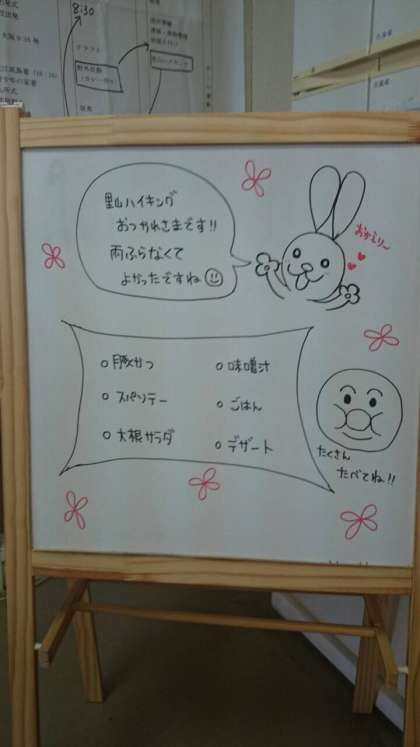 8:30
里山ハイキング
おつかれさまです!!
雨ふらなくて
よかったですね
おかえり〜
○ 豚かつ
○ スパソテー
○ 大根サラダ
○ 味噌汁
○ ごはん
○ デザート
たくさん
たべてね!!